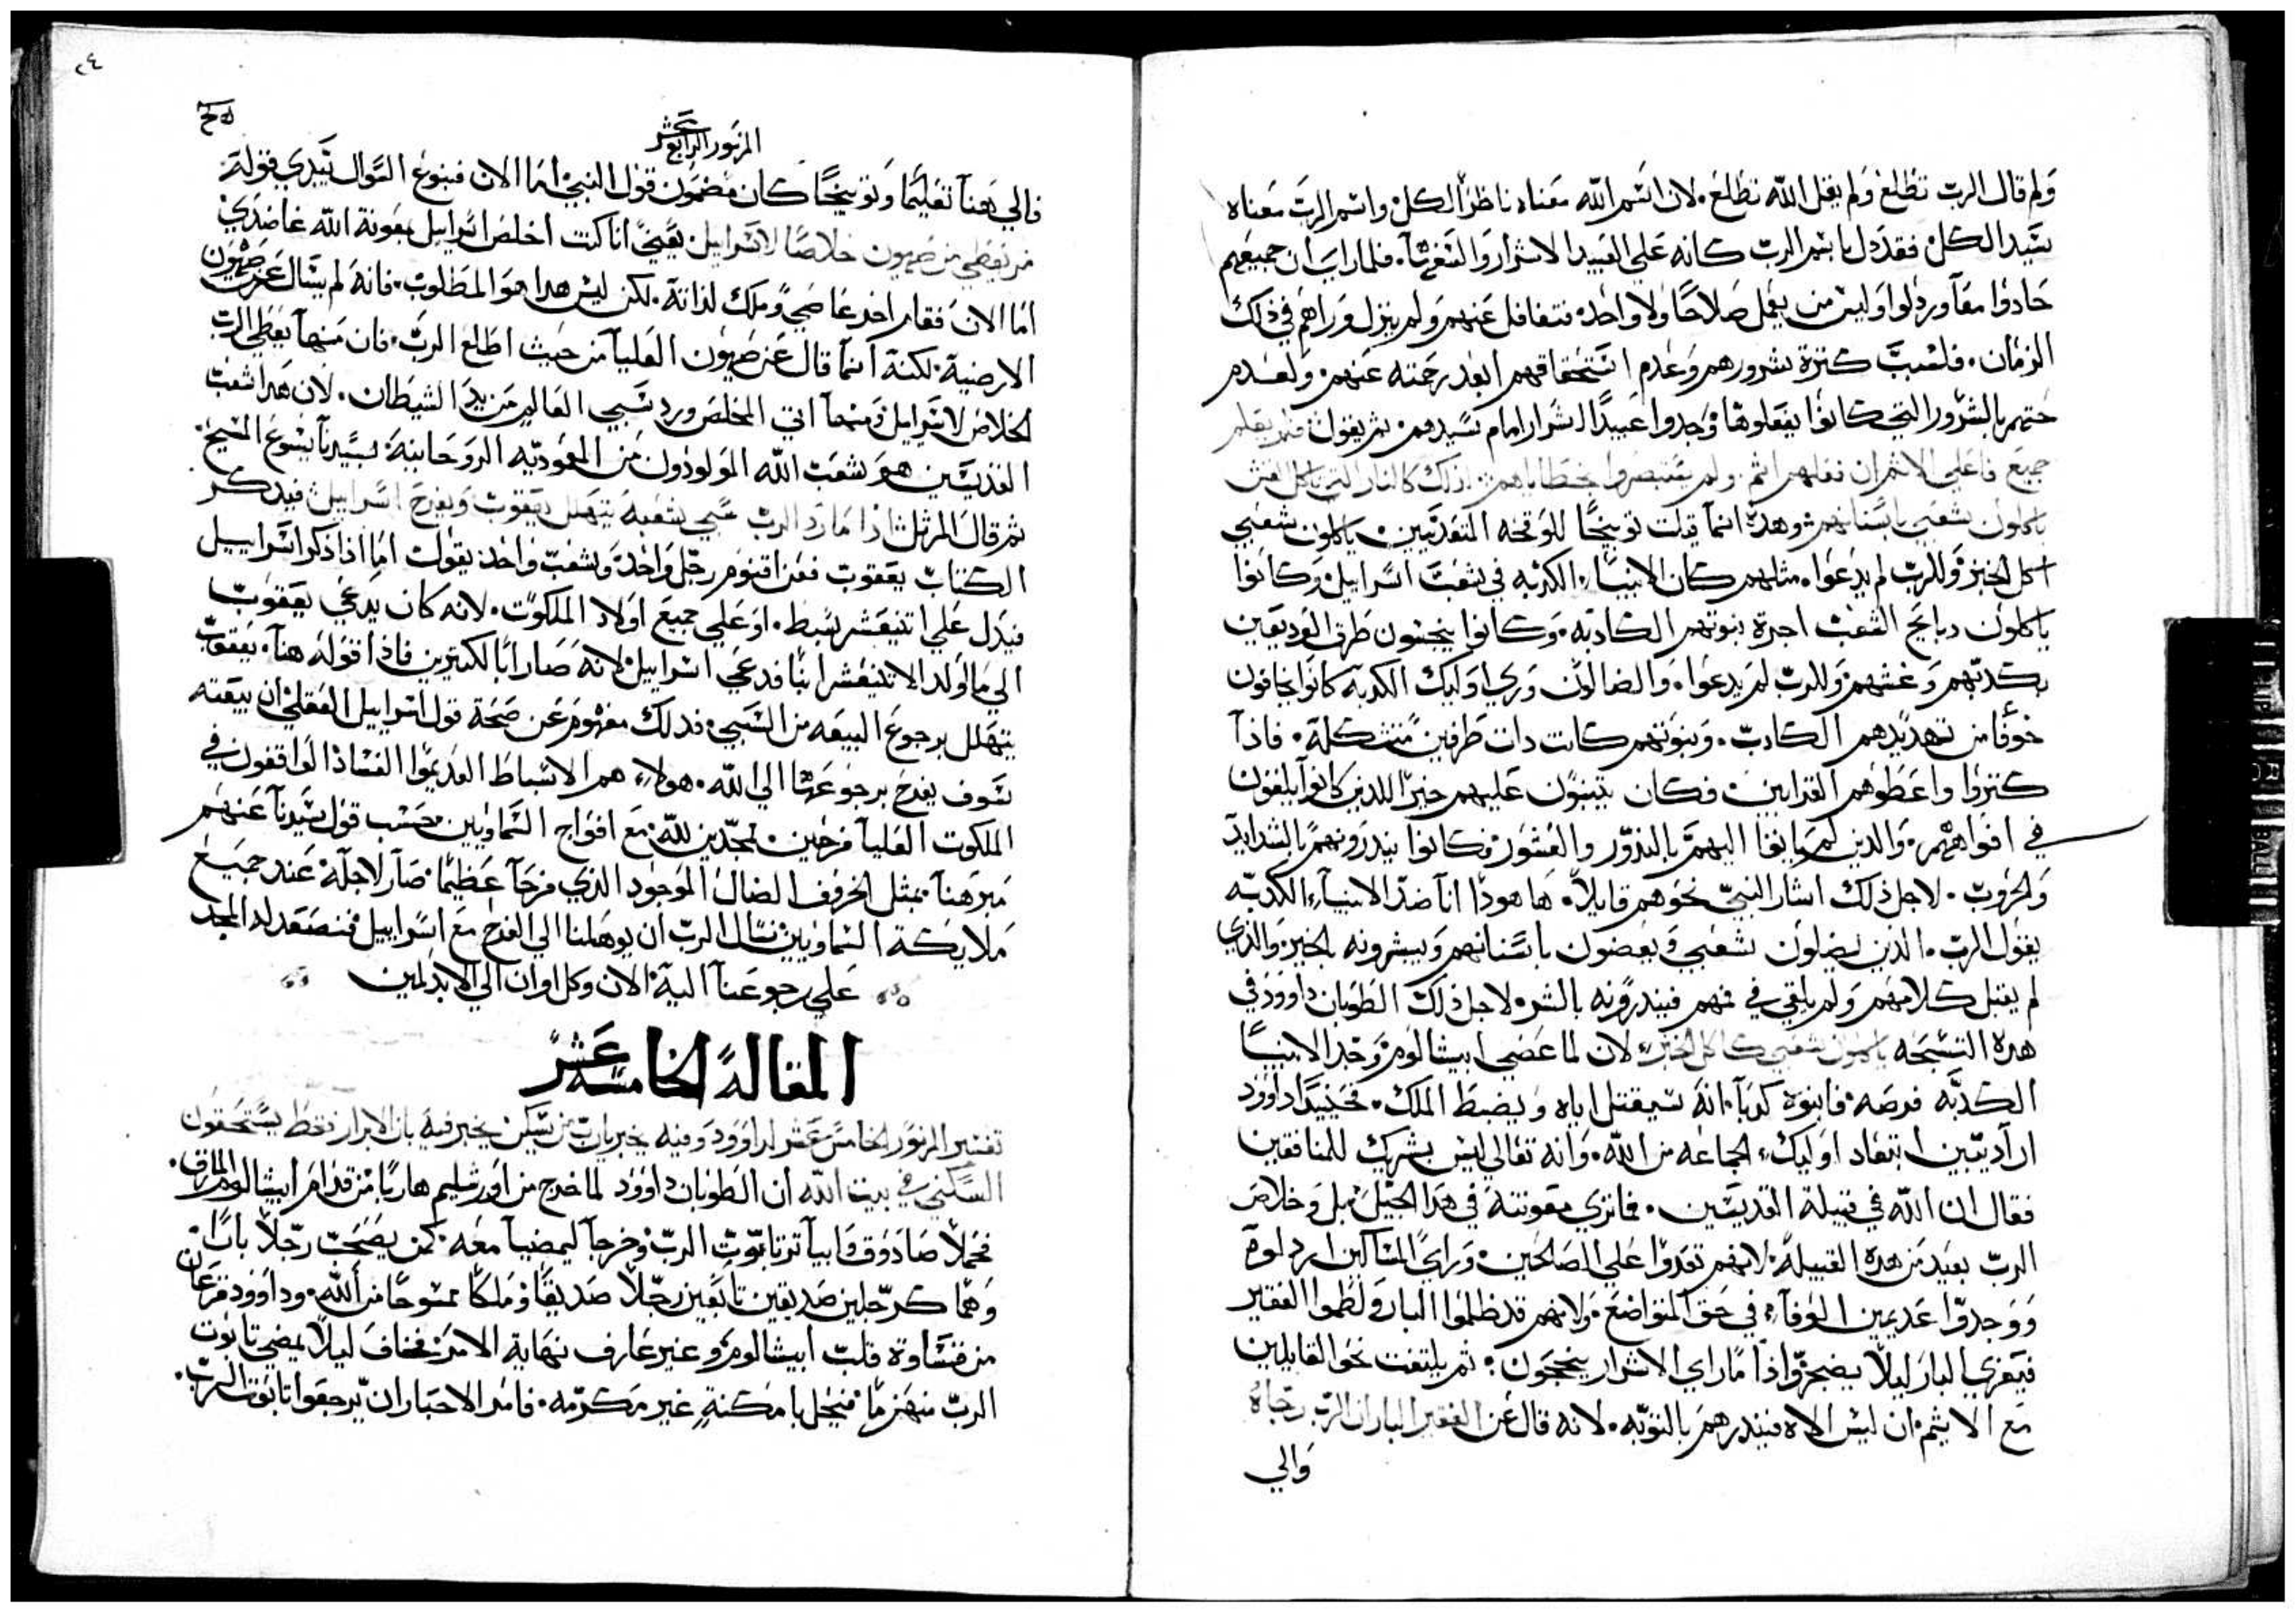 ولم قال الرب تطلع ولم يقل الله تطلع. لان اسم الله معناه ناظر الكل واسم الرب معناه
سيد الكل فقد دل باسم الرب كانه علي العبيد الاشرار والتغـ. فلما راي ان جميعهم
حادوا معاً وردلوا وليس من يعمل صلاحًا ولا واحد. فتغافل عنهم ولم ينزل وراهم في ذلك
الزمان. فلسبب كترة شرورهم وعدم استحقاقهم ابعد رحمته عنهم. ولعدم
حتهم بالشرور التي كانوا يفعلوها وجدوا عبيدًا اشرار امام سيدهم. ثم يقول فلم يعلم
جميع فاعلي الاثم ان فعلهم اثم. ولم يتبصروا بخطاياهم. اذ لك كالنار التي تاكل القش
ياكلون شعبي باسنانهم. وهده انما قيلت توبيخًا للوقحه المتعديين. ياكلون شعبي
اكل الخبز وللرب لم يدعوا. مثلهم كان الانبياء الكدبه في شعب اسراييل. وكانوا
ياكلون دبايح الشعب اجرة بنوتهم الكادبه. وكانوا ينجسون طرق الوديعين
بكدبهم وغشهم وللرب لم يدعوا. والضالون وري اوليك الكدبه كانوا يخافون
خوفًا من تهديدهم الكادب. وبنوتهم كانت دات طرفين متشكلة. فاذا
كتروا واعطوهم القرابين. فكان يتنبون عليهم خيرًا اللذين كانوا يلقون
في افواههم. والذين لم ياتوا اليهم بالندور والعشور فكانوا يندرونهم بالشدايد
والحروب. لاجل ذلك اشار النبي نحوهم قايلاً. ها هودا انا ضد الانبياء الكدبه
يقول الرب. الذين يضلون شعبي ويعضون باسنانهم ويبشرونه بالخير. والذي
لم يقبل كلامهم ولم يلقي في فمهم فيندرونه بالشر. لاجل ذلك الطوبان داوود في
هده التسبحه ياكلون شعبي كاكل الخبز. لان لما عصي ابيشالوم وجد الانبيا
الكدبه فرصه. فانبوه كدبًا. انه سيقتل اباه ويضبط الملك. فحينيدٍ داوود
اراد يبين ابتعاد اوليك الجماعه من الله. وانه تعالي ليس بشريك للمنافقين
فقال ان الله في قبيلة القديسين. فماتري معونته في هدا الجيل بل وخلاص
الرب بعيد من هده القبيلة. لانهم تعدوا علي الصالحين. وراي المساكين اردلوه
ووجدوا عديمين الوفآء في حق المتواضع. ولانهم قد ظلموا البار ولطموا الفقير
فيعزي البار ليلاً يضجر واذا ما راي الاشرار ينجحون. ثم يلتفت نحو القايلين
مع الاثيم. ان ليس الاه فيندرهم بالتوبه. لانه قال عن الفقير البار ان الرب رجاه
والي
٢٤
المزمور الرابع عشر
فالي هنآ تعليمًا وتوبيخًا كان مضمون قول النبي. اما الان فبنوع السوال يبتدي بقوله
من يعطي من صهيون خلاصًا لاسراييل. يعني انا كنت اخلص اسراييل بمعونة الله عاضدي
اما الان فقام اخر عاصي وملك لذاته. لكن ليس هدا هو المطلوب. فانه لم يسال عن صهيون
الارضية. لكنه انما قال عن صهيون العليا من حيث اطلع الرب. فان منها يعطي الرب
الخلاص لاسراييل ومنها اتي المخلص ورد سبي العالم من يد الشيطان. لان هدا شعب
القديسين هو شعب الله المولودون من المعموديه الروحانية بسيدنا يسوع المسيح.
ثم قال المرتل اذا ما رد الرب سبي شعبه يتهلل يعقوب ويفرح اسراييل. فيدكر
الكتاب يعقوب فعن اقنوم رجل واحد وشعب واحد يقول. اما اذا ذكر اسراييل
فيدل علي اتنيعشر سبط. او علي جميع اولاد الملكوت. لانه كان يدعي يعقوب
الي ما اولد الاتنيعشر ابنًا فدعي اسراييل. لانه صار ابًا لكتيرين فاذا قوله هنا. يعقوب
يتهلل برجوع البيعه من السبي. فدلك مفهوم عن صحة قول اسراييل العقلي ان بيعته
سوف يفرح برجوعها الي الله. هولاء هم الاسباط العديموا الفساد الواقفون في
الملكوت العليا فرحين. ممجدين لله. مع افواج السماويين حسب قول سيدنا عنهم
مبرهنآ بمثل الخروف الضال الموجود الذي فرحآ عظيمًا صار لاجله عند جميع
ملايكة السماويين. نسال الرب ان يوهلنا الي الفرح مع اسراييل فنصعد له المجد
علي رجوعنا اليه. الان وكل اوان الي الابد امين
المقالة الخامسة عشر
تفسير المزمور الخامس عشر لداوود وفيه يخبر يارب من يسكن يخبر فيه بان الابرار فقط يستحقون
السكني في بيت الله ان الطوبان داوود لما خرج من اورشليم هاربًا من قدام ابيشالوم المارق.
فحملا صادوق وابياتر تابوت الرب وخرجا ليمضيا معه. كمن يصحب رجلاً بارًا.
وهما كرجلين صديقين تابعين رجلاً صديقًا وملكًا ممسوحًا من الله. وداوود فزعان
من قساوة قلب ابيشالوم وغير عارف نهاية الامر. فخاف ليلاً يمضي تابوت
الرب منهزمًا. فيحل بامكنةٍ غير مكرمه. فامر الاحبار ان يرجعوا تابوت الرب.